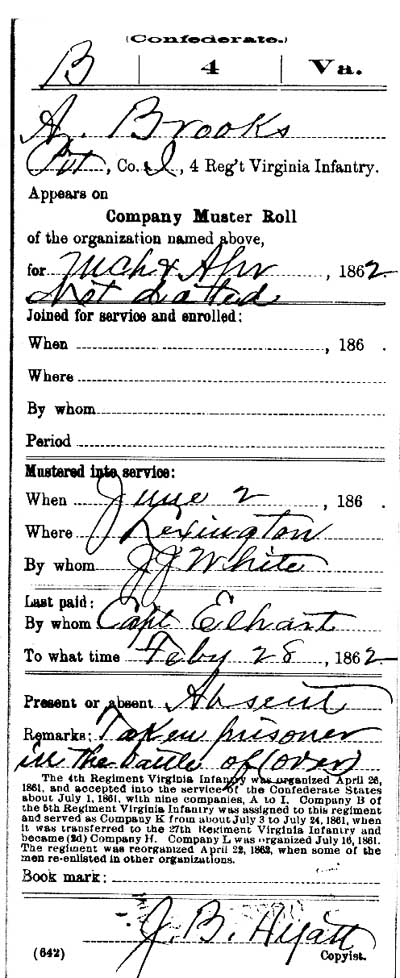 (Confederate.)
B | 4 | Va.
A. Brooks
Pvt, Co. I, 4 Reg't Virginia Infantry.
Appears on
Company Muster Roll
of the organization named above,
for Mch & Apr, 1862.
Not dated
Joined for service and enrolled:
When , 186 .
Where
By whom
Period
Mustered into service:
When June 2, 186 .
Where Lexington
By whom J J White
Last paid:
By whom Capt Elhart
To what time Feby 28, 1862.
Present or absent Absent
Remarks: Taken prisoner
in the battle of (over)
The 4th Regiment Virginia Infantry was organized April 26,
1861, and accepted into the service of the Confederate States
about July 1, 1861, with nine companies, A to I. Company B of
the 5th Regiment Virginia Infantry was assigned to this regiment
and served as Company K from about July 3 to July 24, 1861, when
it was transferred to the 27th Regiment Virginia Infantry and
became (2d) Company H. Company L was organized July 16, 1861.
The regiment was reorganized April 22, 1862, when some of the
men re-enlisted in other organizations.
Book mark:
J. B. Hyatt
(642) Copyist.